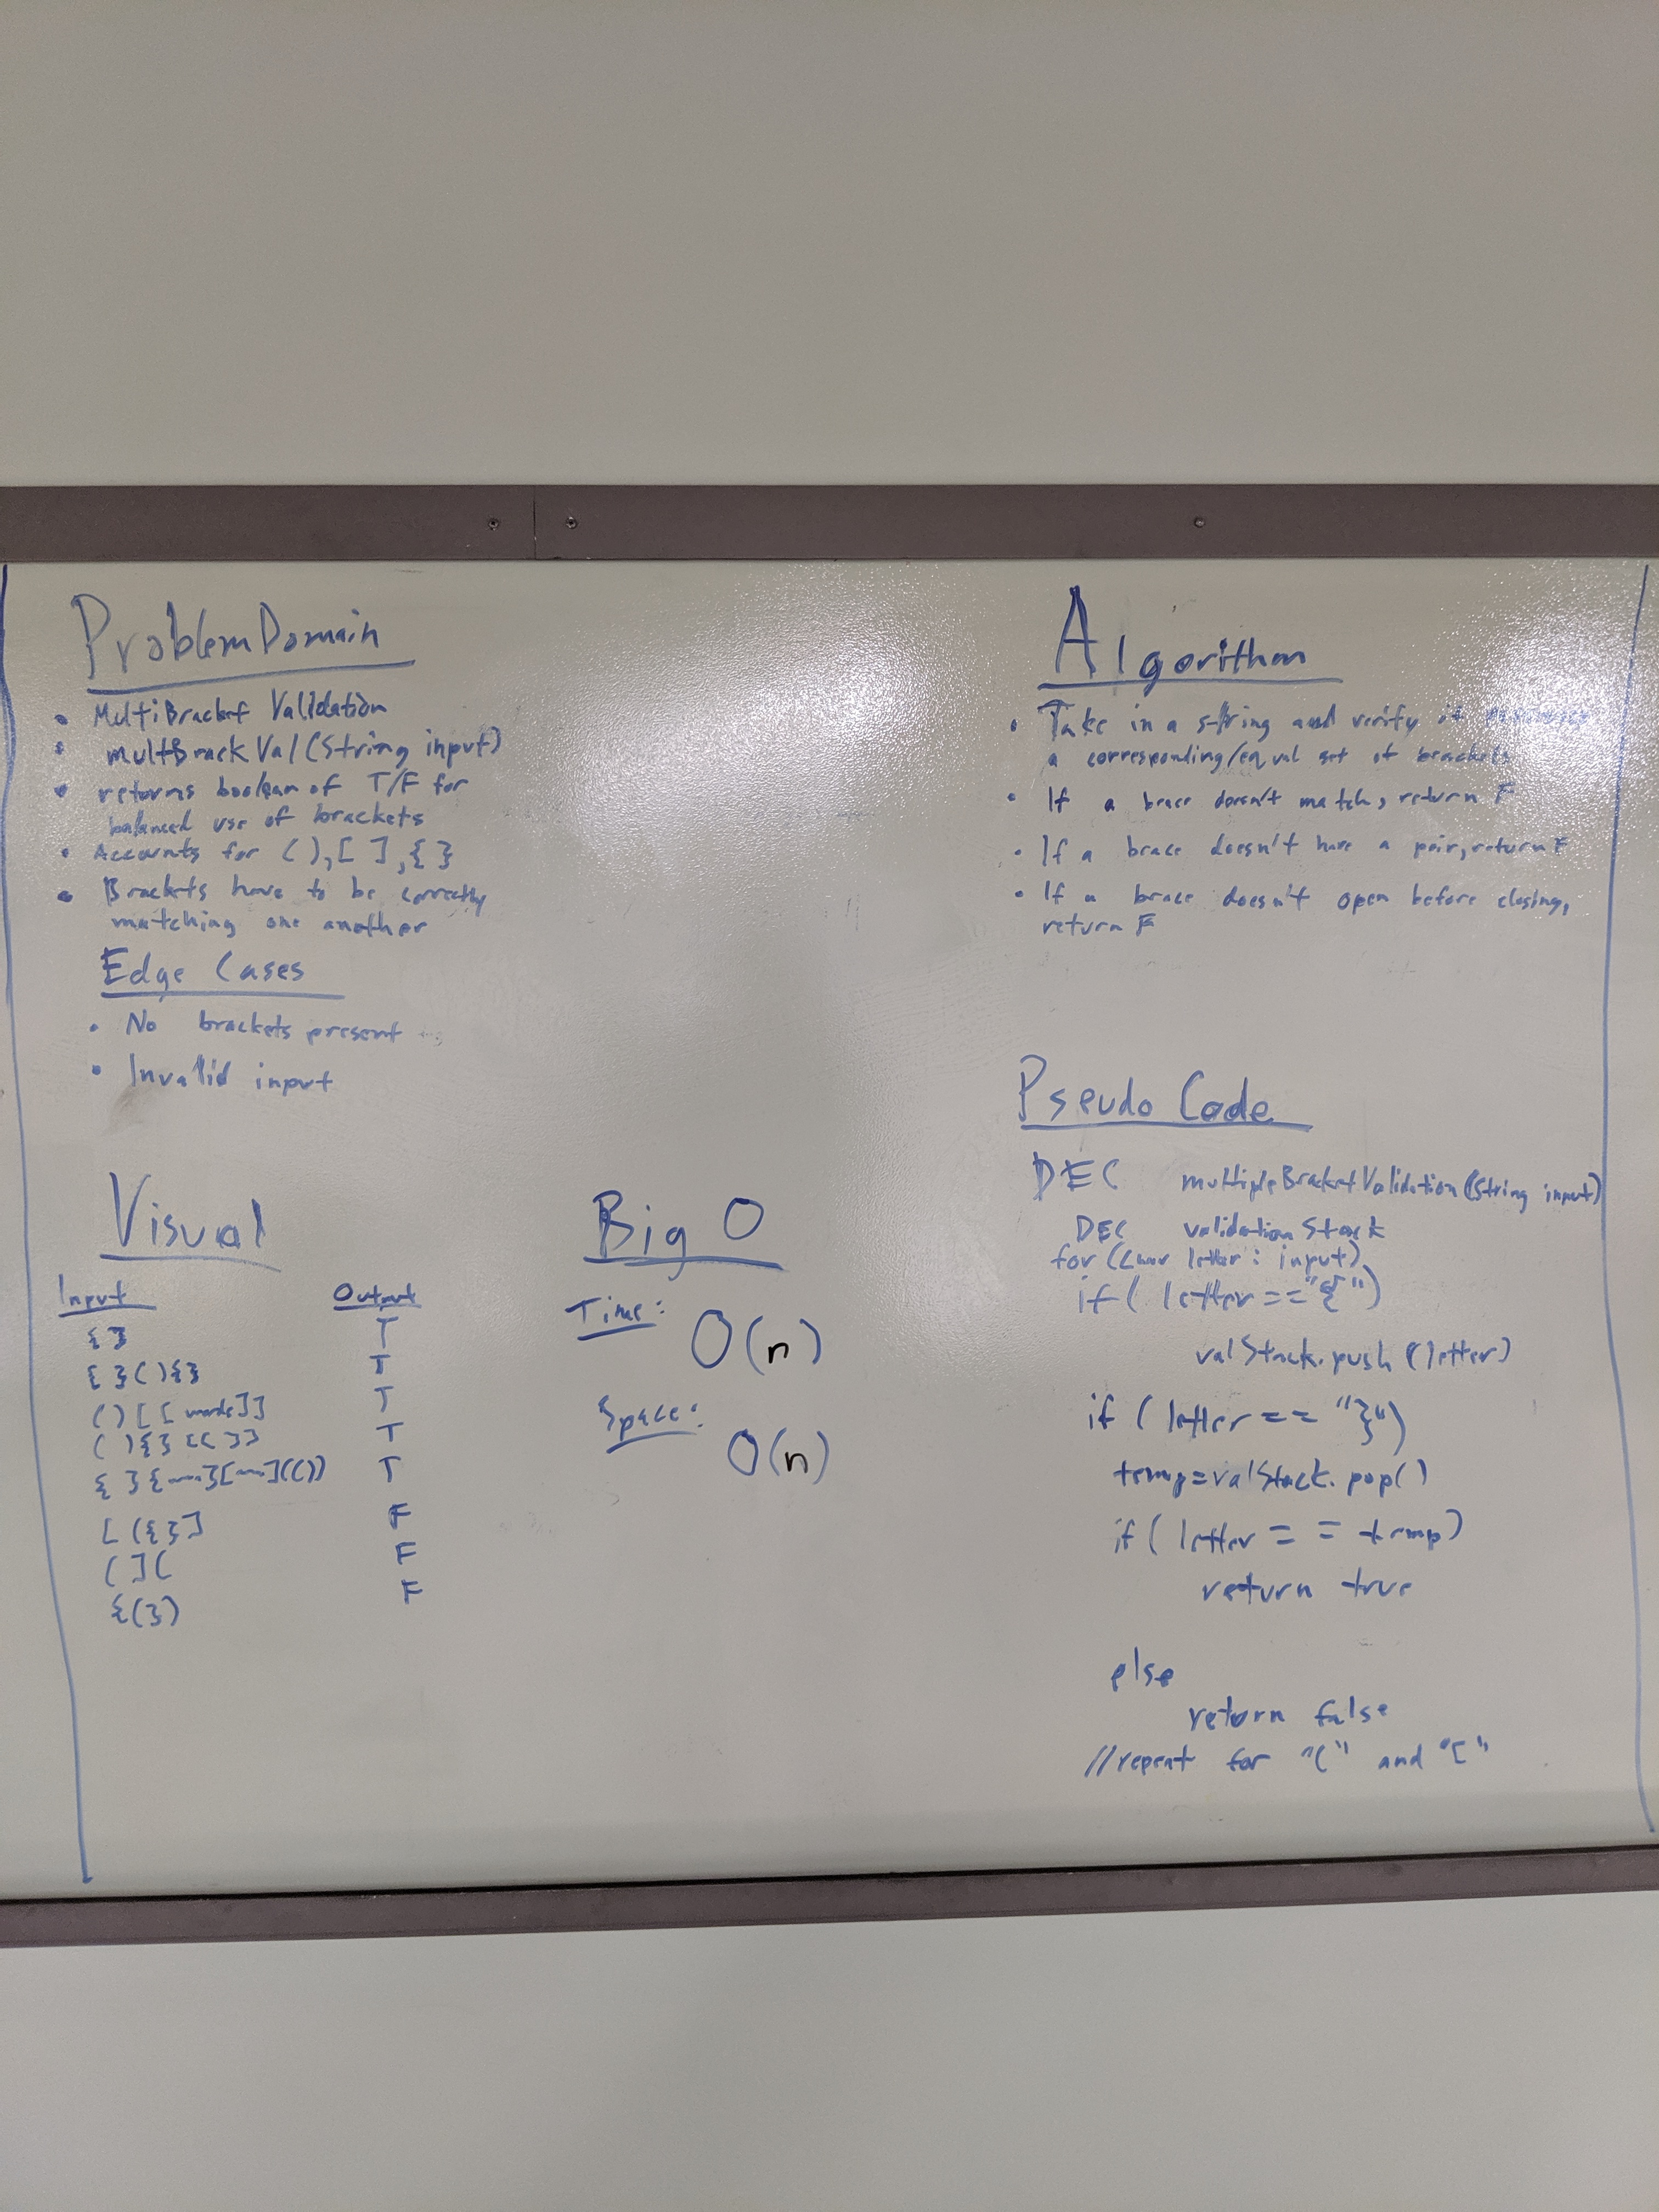 Problem Domain
• MultiBracket Validation
• multBrackVal(String input)
• returns boolean of T/F for
balanced use of brackets
• Accounts for ( ), [ ], { }
• Brackets have to be correctly
matching one another
Edge Cases
• No brackets present
• Invalid input
Visual
Input Output
{ } T
{ } ( ) { } T
( ) [ [ ]] T
( ) { } [ [ ] ] T
{ } { } [ ] ( ( ) ) T
[ ( { } ] F
( ] ( F
{ ( } ) F
Big O
Time: O(n)
Space: O(n)
Algorithm
• Take in a string and verify it
a corresponding/equal set of brackets
• If a brace doesn't match, return F
• If a brace doesn't have a pair, return F
• If a brace doesn't open before closing,
return F
Pseudo Code
DEC multipleBracketValidation(String input)
DEC validationStack
for ( letter : input)
if ( letter == "{")
valStack.push (letter)
if ( letter == "}")
temp = valStack.pop()
if ( letter == temp)
return true
else
return false
//repeat for "(" and "["